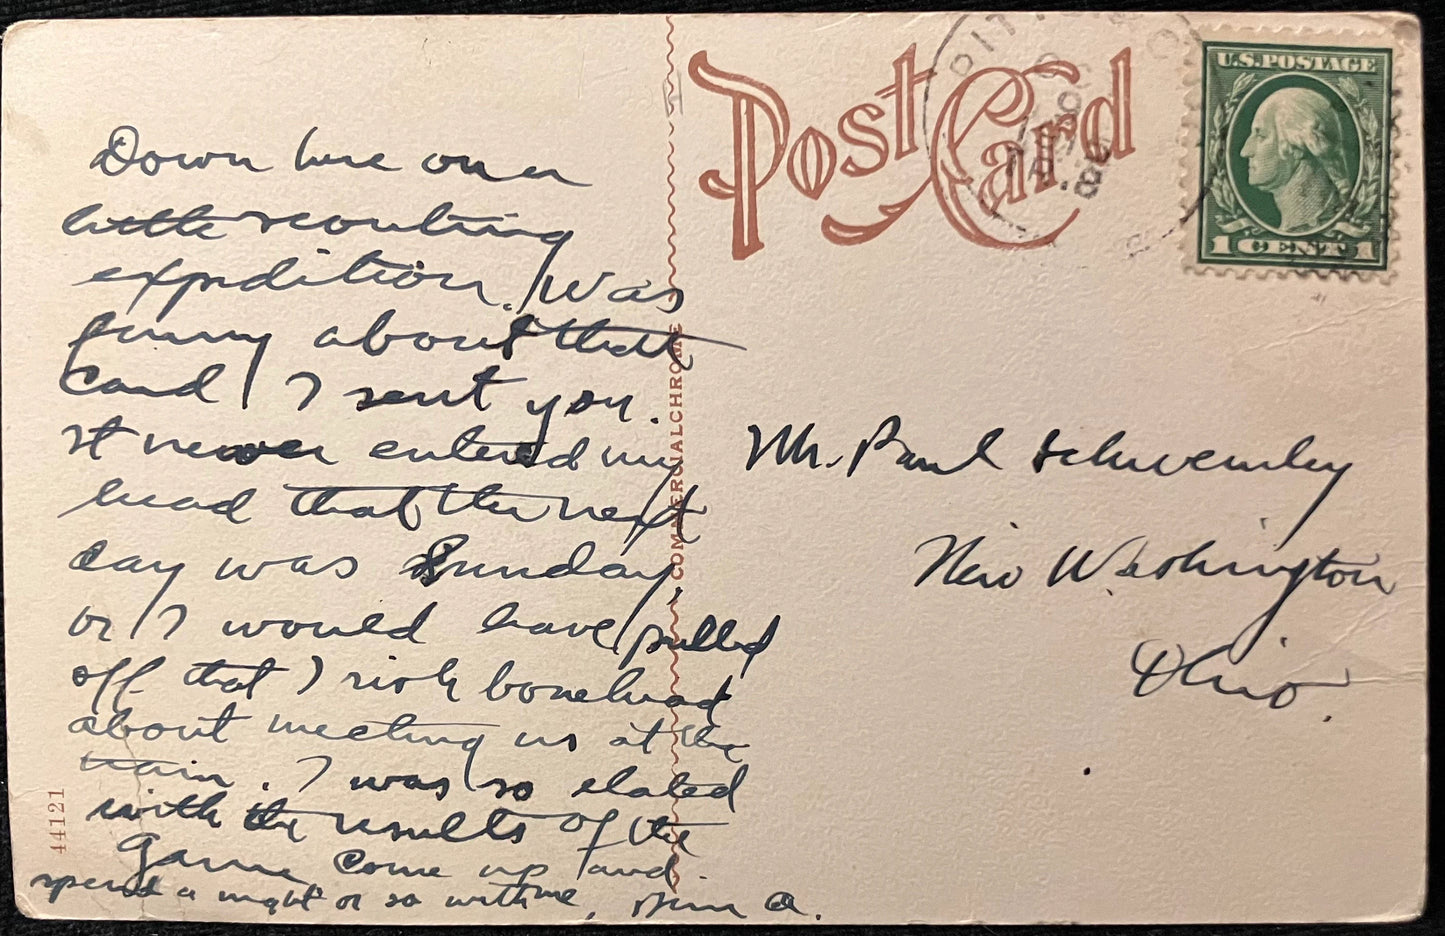 Down here on a
little scouting
expedition. Was
funny about that
card I sent you.
It never entered my
head that the next
day was Sunday,
or I would have pulled
off that I rick bonehead
about meeting us at the
train. I was so elated
with the results of the
game. Come up and
spend a night or so with me, A.
44121
COMMERCIALCHROME
Post Card
U.S. POSTAGE
1 CENT 1
Mr. Paul
New Washington
Ohio.